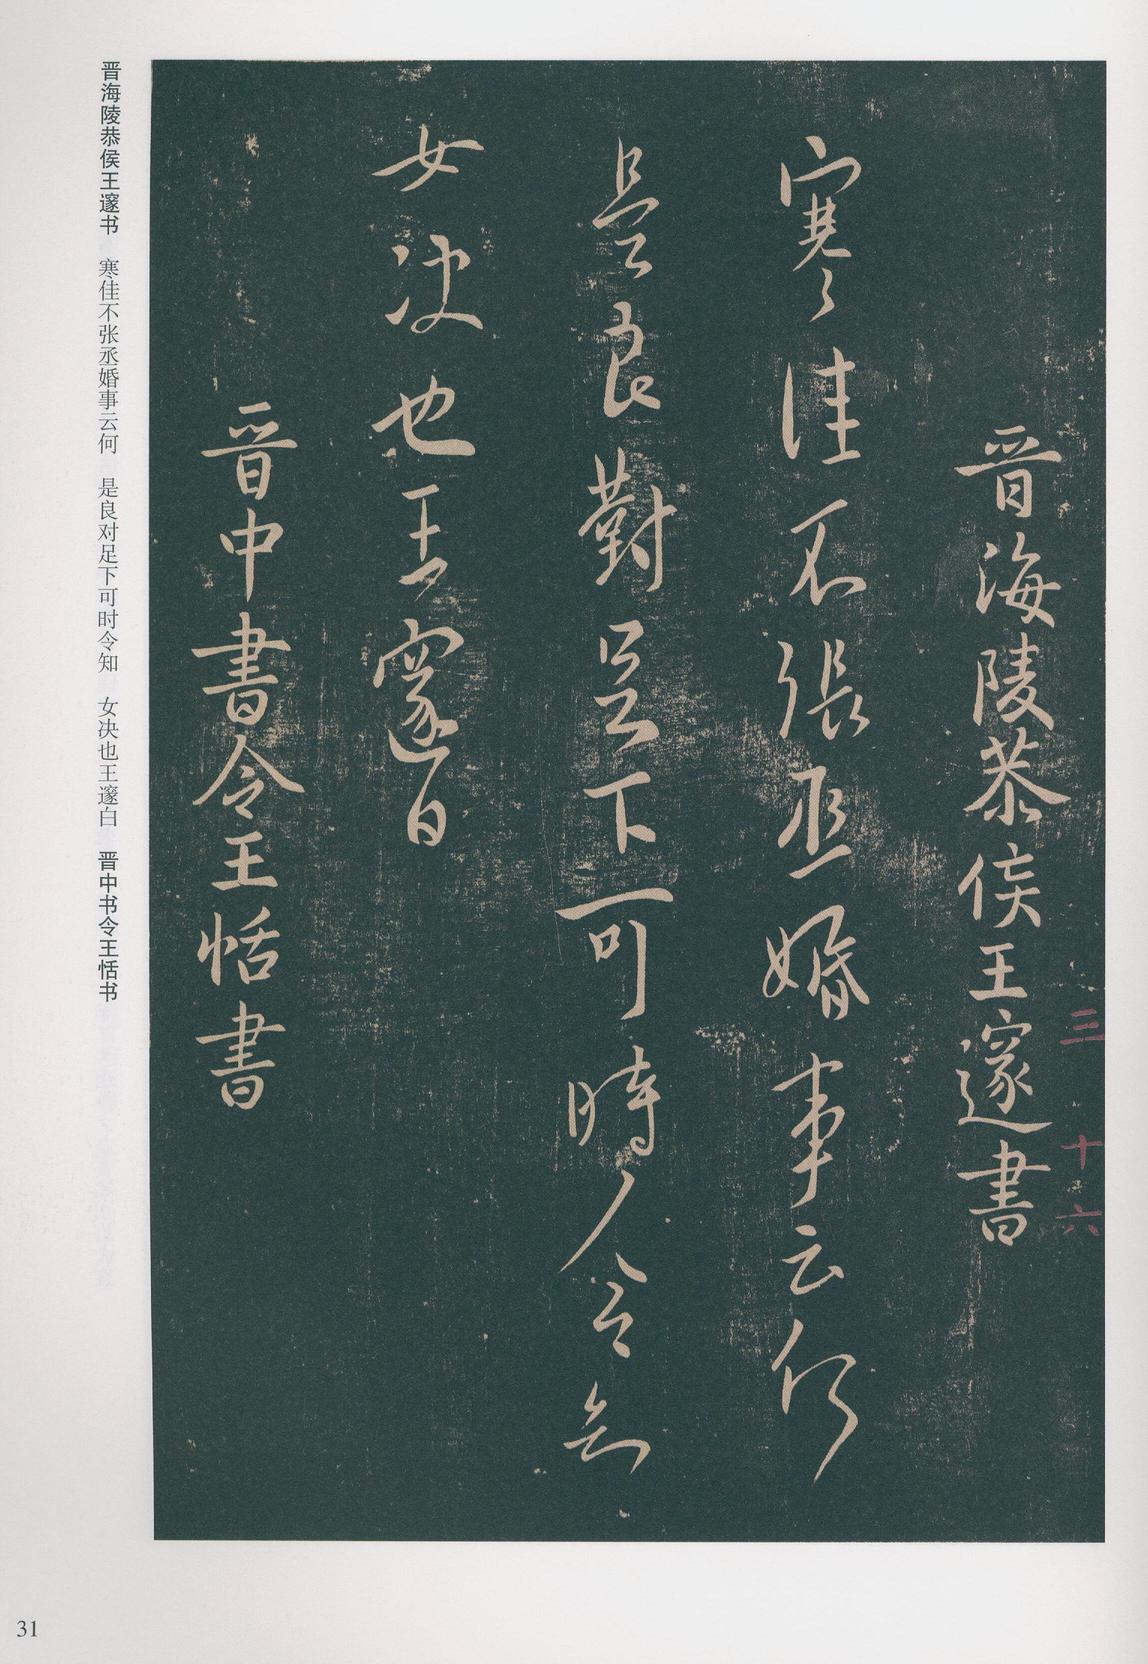 晋海陵恭侯王邃書
寒佳不張丞婚事云何
是良對足下可時令知
女决也王邃白
晋中書令王恬書
三 十六
晋海陵恭侯王邃书 寒佳不张丞婚事云何 是良对足下可时令知 女决也王邃白 晋中书令王恬书
31